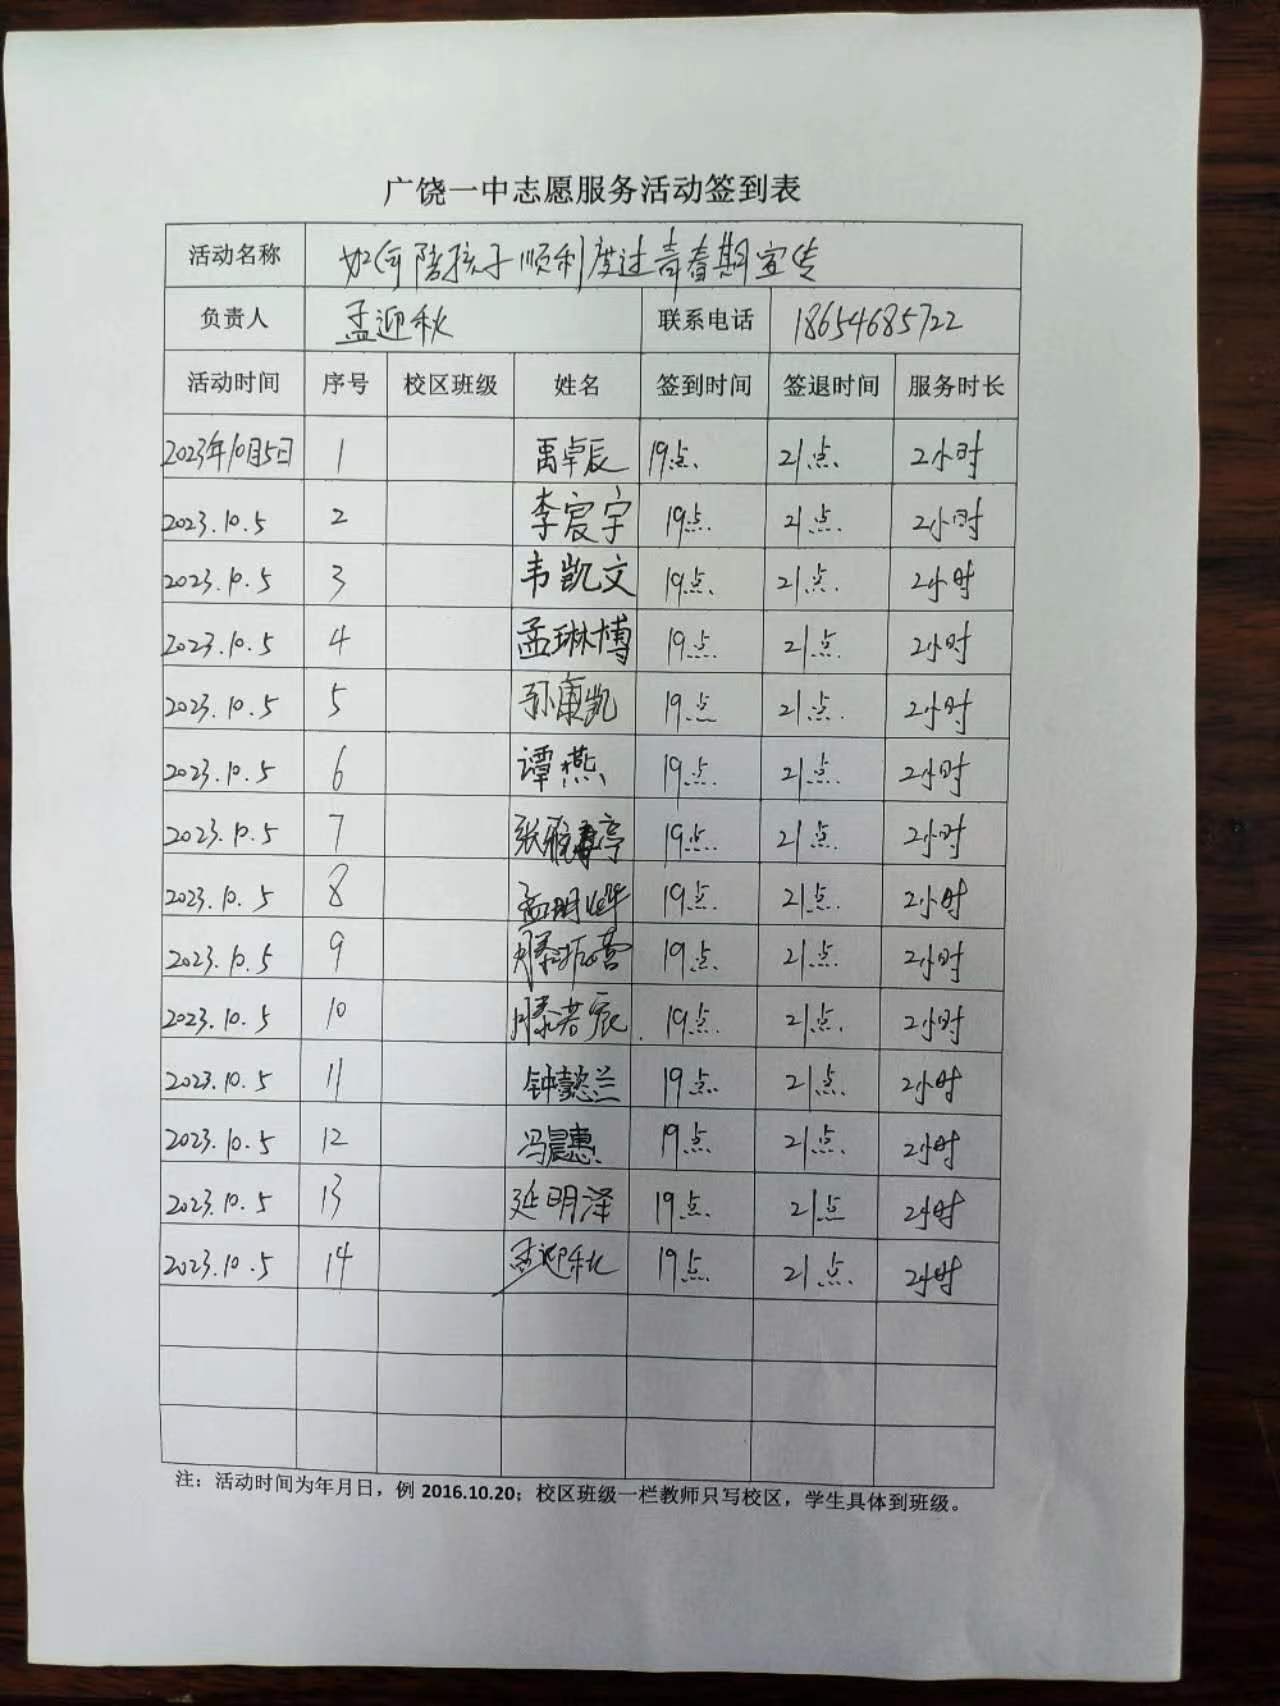 广饶一中志愿服务活动签到表
活动名称 如何陪孩子顺利度过青春期宣传
负责人 孟迎秋 联系电话 18654685722
活动时间 序号 校区班级 姓名 签到时间 签退时间 服务时长
2023年10月5日 1 禹卓辰 19点. 21点. 2小时
2023.10.5 2 李宸宇 19点. 21点. 2小时
2023.10.5 3 韦凯文 19点. 21点. 2小时
2023.10.5 4 孟琳博 19点. 21点. 2小时
2023.10.5 5 孙康凯 19点 21点. 2小时
2023.10.5 6 谭燕 19点. 21点. 2小时
2023.10.5 7 张雅亭 19点. 21点. 2小时
2023.10.5 8 孟明烨 19点. 21点. 2小时
2023.10.5 9 滕振营 19点. 21点. 2小时
2023.10.5 10 滕若辰 19点. 21点. 2小时
2023.10.5 11 钟懿兰 19点. 21点. 2小时
2023.10.5 12 冯晨惠 19点. 21点. 2小时
2023.10.5 13 延明泽 19点. 21点 2小时
2023.10.5 14 孟迎秋 19点. 21点. 2小时
注：活动时间为年月日，例 2016.10.20；校区班级一栏教师只写校区，学生具体到班级。